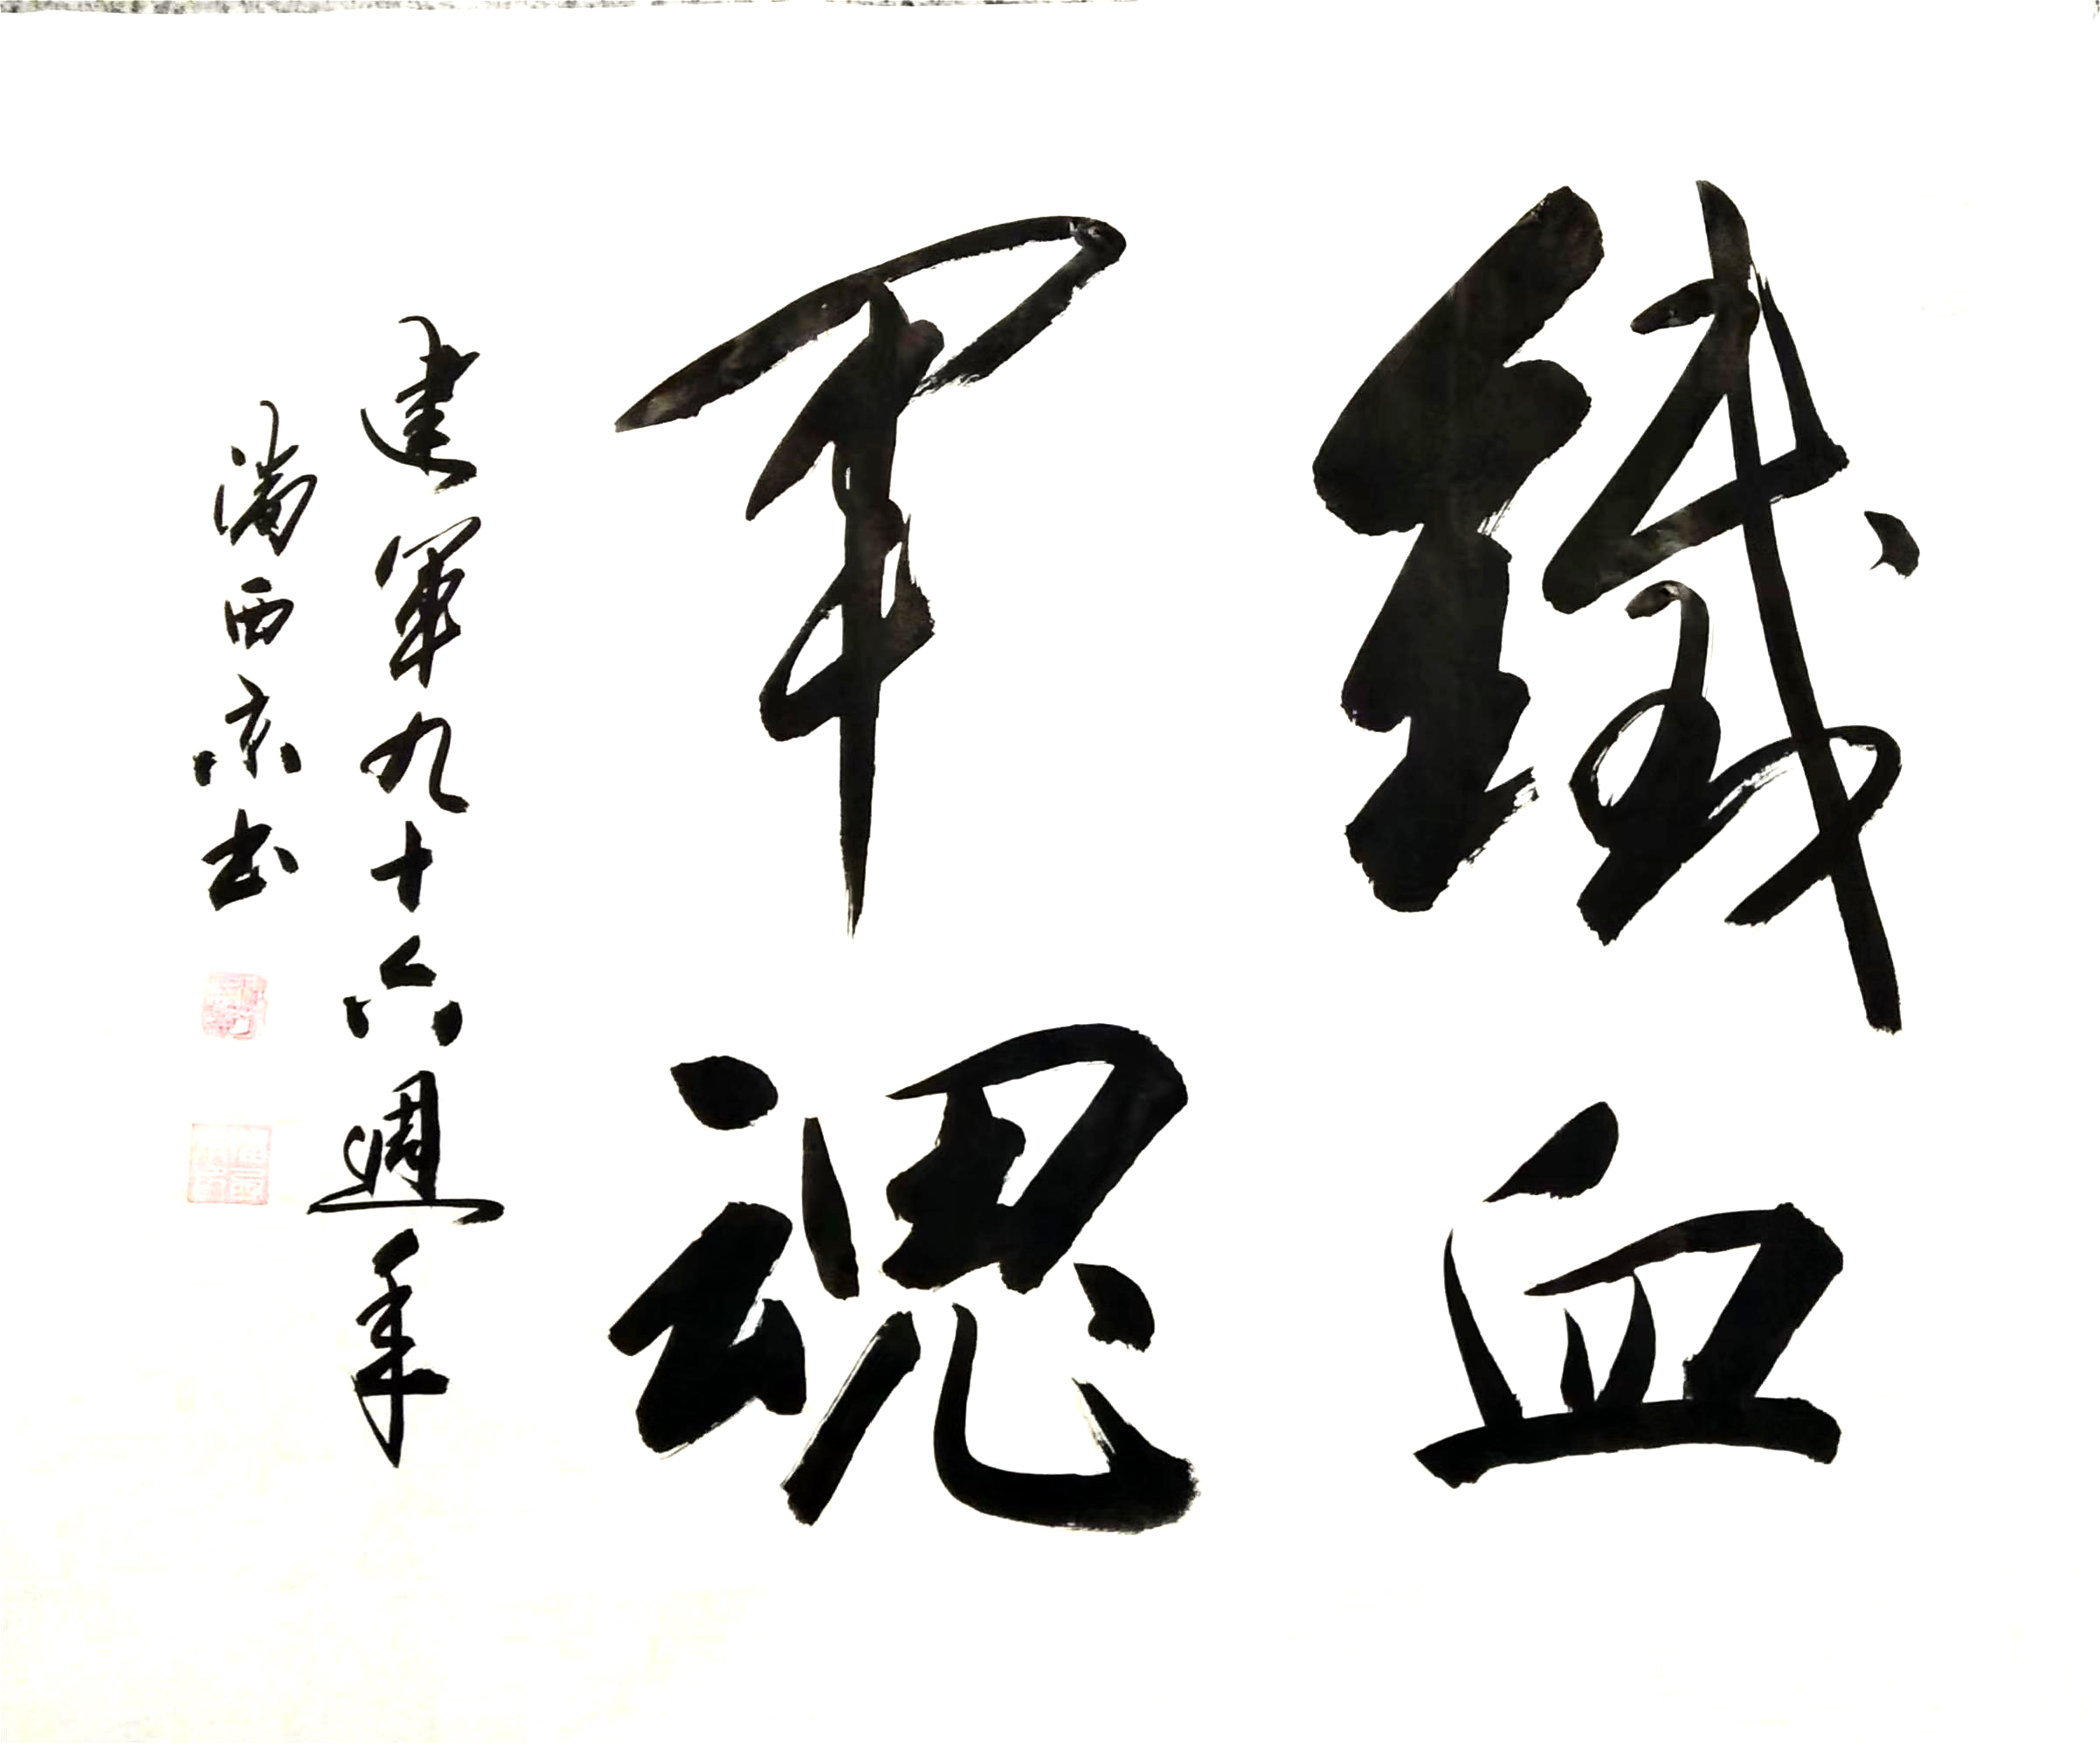 鐵血
軍魂
建軍九十六週年
西京书